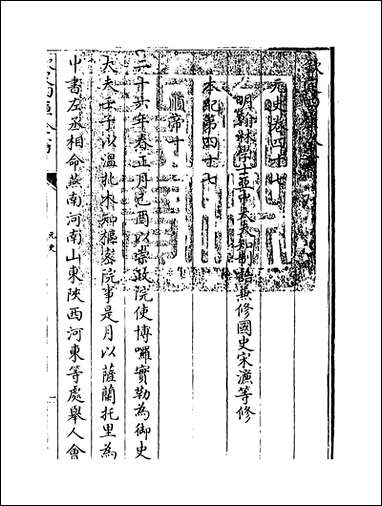 欽定四庫全書
元史卷四十七
明翰林學士亞中大夫知制誥兼修國史宋濂等修
本紀第四十七
順帝十
二十六年春正月己酉以崇政院使博囉實勒為御史
大夫壬子以溫扎木知樞密院事是月以薩蘭托里為
中書左丞相命燕南河南山東陝西河東等處舉人會
元史
一